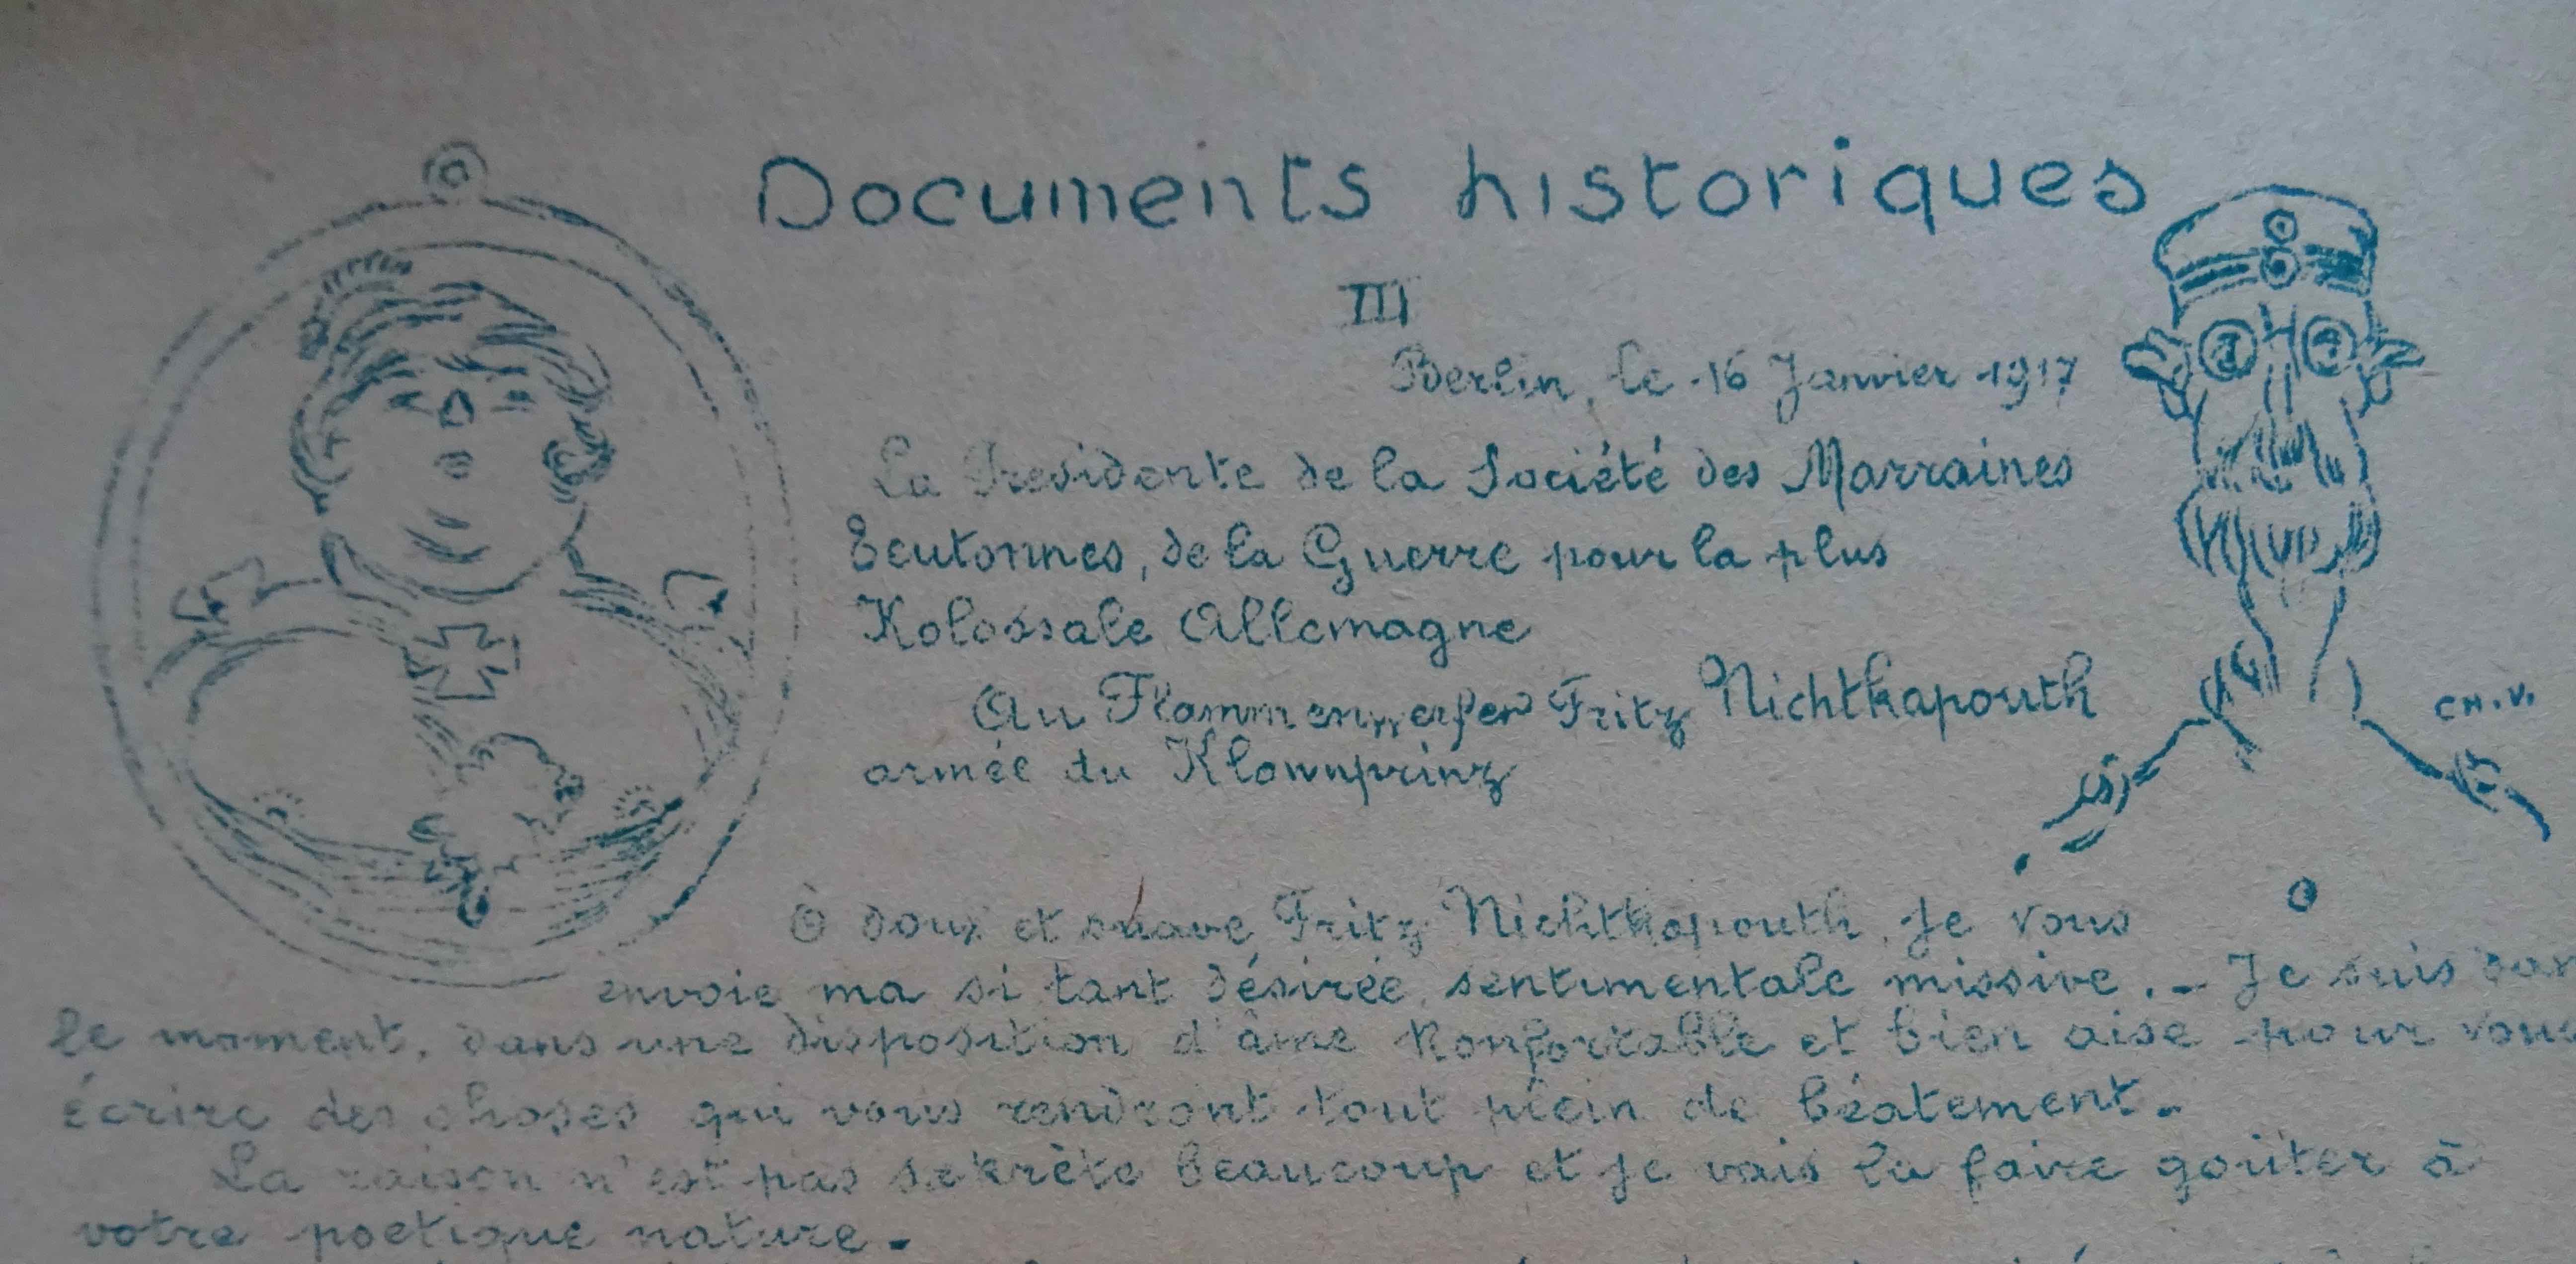 Documents historiques
III
Berlin, le 16 Janvier 1917
La Presidente de la Société des Marraines
Teutonnes, de la Guerre pour la plus
Kolossale Allemagne
Au Flammenwerfer Fritz Nichtkapouth
armée du Klownprinz
CH.V.
Ô doux et suave Fritz Nichtkapouth, je vous
envoie ma si tant désirée sentimentale missive. - Je suis dan
le moment, dans une disposition d'âme Konfortable et bien aise pour vous
écrire des choses qui vous rendront tout plein de béatement.
La raison n'est pas sekrète beaucoup et je vais la faire goûter à
votre poetique nature.